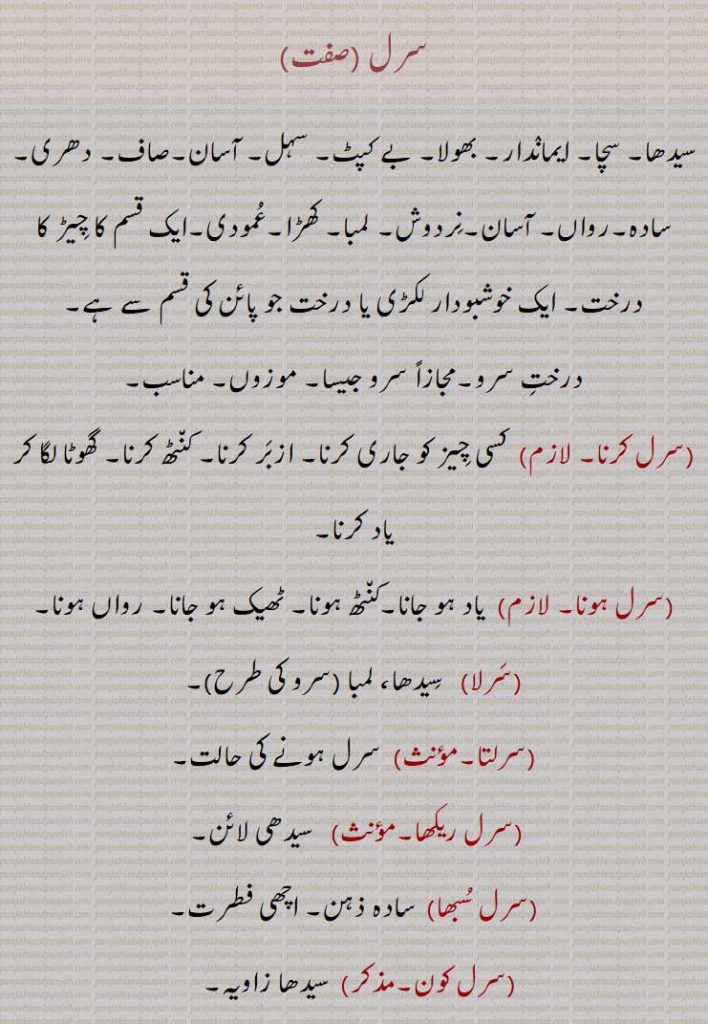 سرل (صفت)
سیدھا۔ سچا۔ ایماندار۔ بھولا۔ بے کپٹ۔ سہل۔ آسان۔صاف۔ دھری۔
سادہ۔رواں۔ آسان۔نِردوش۔ لمبا۔ کھڑا۔عُمودی۔ایک قسم کا چِیڑ کا
درخت۔ ایک خوشبودار لکڑی یا درخت جو پائن کی قسم سے ہے۔
درختِ سرو۔مجازاً سرو جیسا۔ موزوں۔ مناسب۔
(سرل کرنا۔ لازم) کسی چِیز کو جاری کرنا۔ ازبَر کرنا۔ کنّٹھ کرنا۔ گھوٹا لگا کر
یاد کرنا۔
(سرل ہونا۔ لازم) یاد ہو جانا۔کنّٹھ ہونا۔ ٹھیک ہو جانا۔ رواں ہونا۔
(سَرلا) سِیدھا، لمبا (سرو کی طرح)۔
(سرلتا۔مؤنث) سرل ہونے کی حالت۔
(سرل ریکھا۔مؤنث) سیدھی لائن۔
(سرل سُبھا) سادہ ذہن۔ اچھی فطرت۔
(سرل کون۔مذکر) سیدھا زاویہ۔